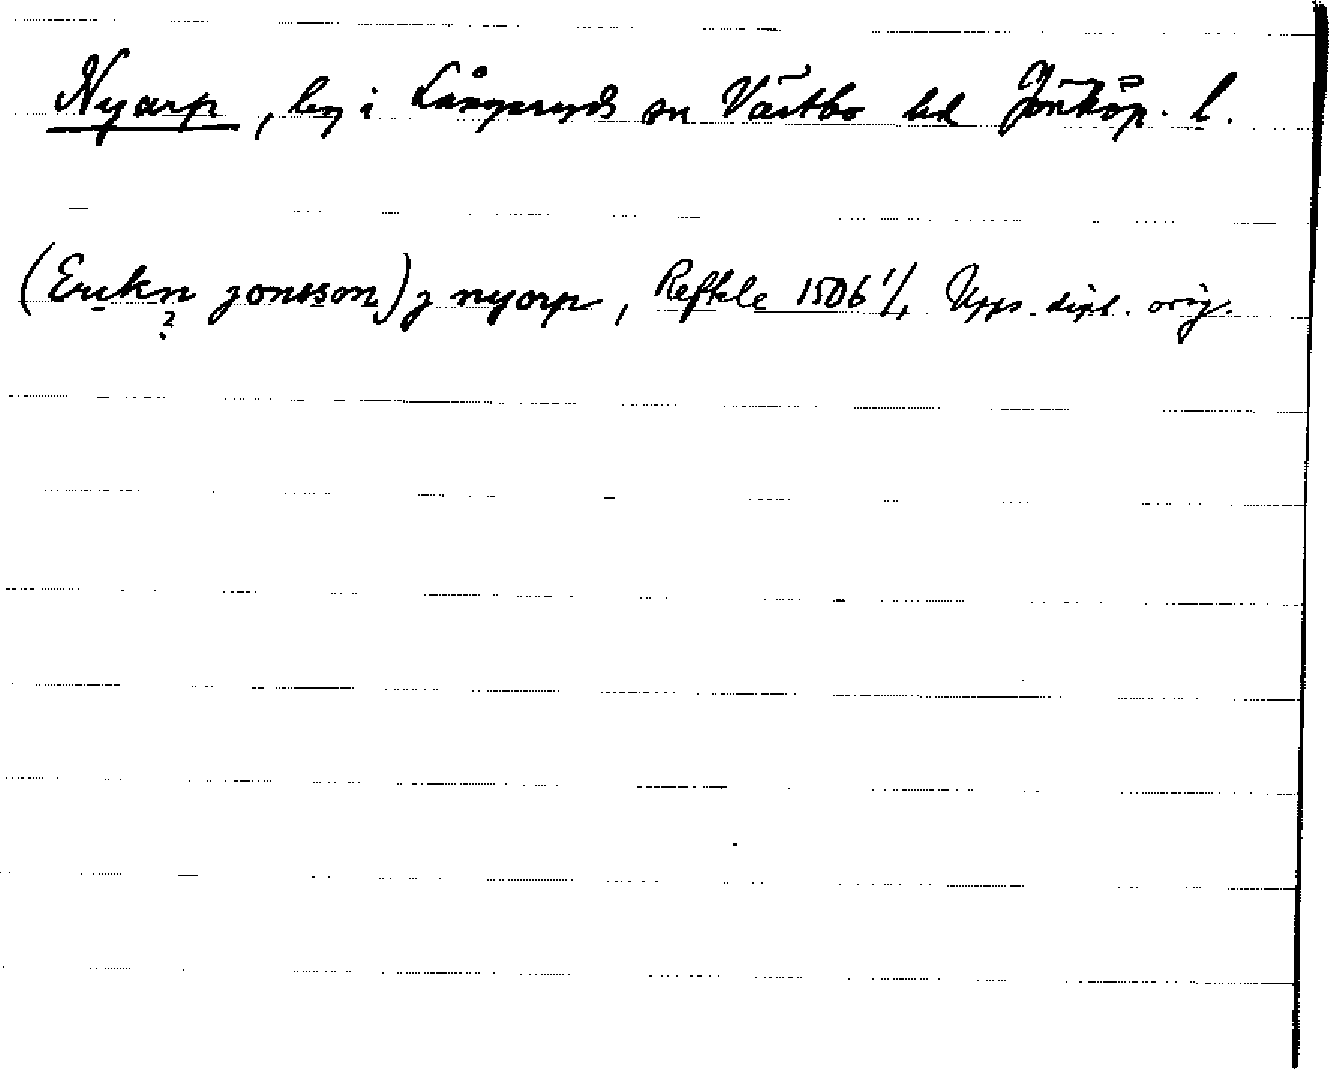 Nyarp, by i Långaryds sn Västbo hd Jönköp. l.
(Erikn jonsson) j nyorp, Reftele 1506 1/1 Upps. dipl. orig.
?